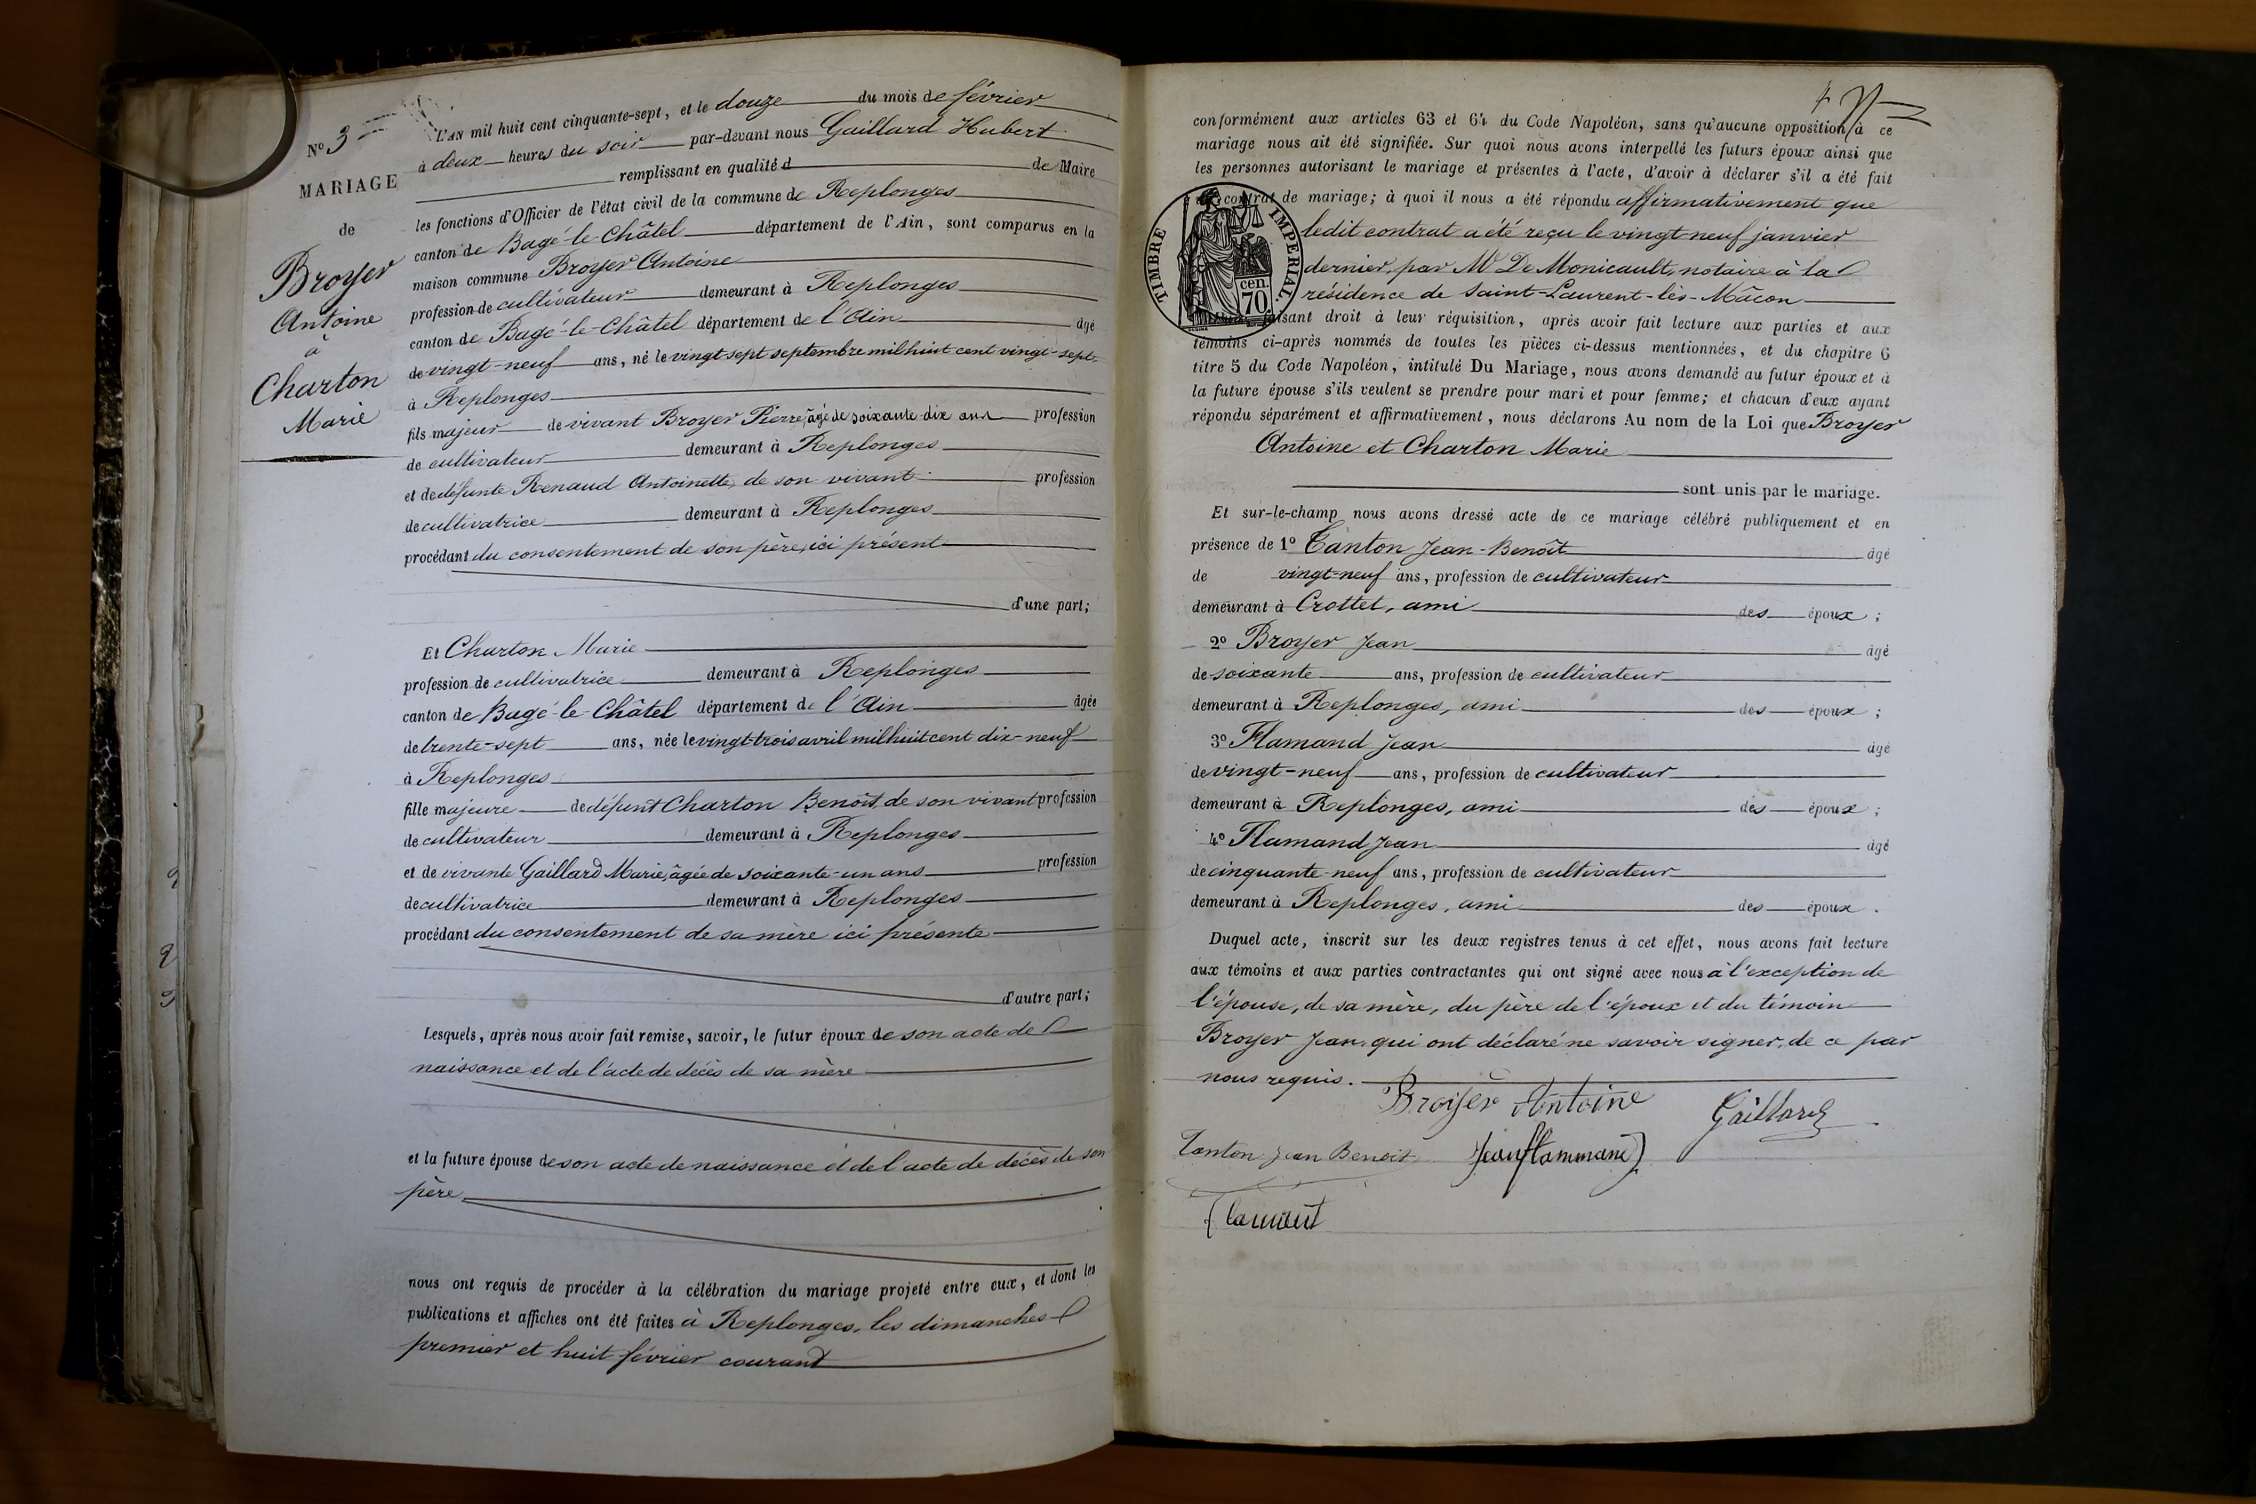 N° 3
MARIAGE
de
Broyer
Antoine
à
Charton
Marie
L'AN mil huit cent cinquante-sept, et le douze du mois de février
à deux heures du soir par-devant nous Gaillard Hubert
remplissant en qualité d de Maire
les fonctions d'Officier de l'état civil de la commune de Replonges
canton de Bagé-le-Châtel département de l'Ain, sont comparus en la
maison commune Broyer Antoine
profession de cultivateur demeurant à Replonges
canton de Bagé-le-Châtel département de l'Ain âgé
de vingt-neuf ans, né le vingt-sept septembre mil huit cent vingt-sept
à Replonges
fils majeur de vivant Broyer Pierre, âgé de soixante-dix ans profession
de cultivateur demeurant à Replonges
et de défunte Renaud Antoinette, de son vivant profession
de cultivatrice demeurant à Replonges
procédant du consentement de son père, ici présent
d'une part;
Et Charton Marie
profession de cultivatrice demeurant à Replonges
canton de Bagé-le-Châtel département de l'Ain âgée
de trente-sept ans, née le vingt-trois avril mil huit cent dix-neuf
à Replonges
fille majeure de défunt Charton Benoît, de son vivant profession
de cultivateur demeurant à Replonges
et de vivante Gaillard Marie, âgée de soixante-un ans profession
de cultivatrice demeurant à Replonges
procédant du consentement de sa mère ici présente
d'autre part;
Lesquels, après nous avoir fait remise, savoir, le futur époux de son acte de
naissance et de l'acte de décès de sa mère
et la future épouse de son acte de naissance et de l'acte de décès de son
père
nous ont requis de procéder à la célébration du mariage projeté entre eux, et dont les
publications et affiches ont été faites à Replonges, les dimanches
premier et huit février courant
conformément aux articles 63 et 64 du Code Napoléon, sans qu'aucune opposition à ce
mariage nous ait été signifiée. Sur quoi nous avons interpellé les futurs époux ainsi que
les personnes autorisant le mariage et présentes à l'acte, d'avoir à déclarer s'il a été fait
contrat de mariage; à quoi il nous a été répondu affirmativement que
ledit contrat a été reçu le vingt neuf janvier
dernier, par Me De Monicault, notaire à la
résidence de Saint-Laurent-lès-Mâcon
TIMBRE IMPERIAL.
cen.
70
faisant droit à leur réquisition, après avoir fait lecture aux parties et aux
témoins ci-après nommés de toutes les pièces ci-dessus mentionnées, et du chapitre 6
titre 5 du Code Napoléon, intitulé Du Mariage, nous avons demandé au futur époux et à
la future épouse s'ils veulent se prendre pour mari et pour femme; et chacun d'eux ayant
répondu séparément et affirmativement, nous déclarons Au nom de la Loi que Broyer
Antoine et Charton Marie
sont unis par le mariage.
Et sur-le-champ nous avons dressé acte de ce mariage célébré publiquement et en
présence de 1° Tanton Jean-Benoît âgé
de vingt-neuf ans, profession de cultivateur
demeurant à Crottet, ami des époux;
2° Broyer Jean âgé
de soixante ans, profession de cultivateur
demeurant à Replonges, ami des époux;
3° Flamand Jean âgé
de vingt-neuf ans, profession de cultivateur
demeurant à Replonges, ami des époux;
4° Flamand Jean âgé
de cinquante-neuf ans, profession de cultivateur
demeurant à Replonges, ami des époux.
Duquel acte, inscrit sur les deux registres tenus à cet effet, nous avons fait lecture
aux témoins et aux parties contractantes qui ont signé avec nous à l'exception de
l'épouse, de sa mère, du père de l'époux et du témoin
Broyer Jean qui ont déclaré ne savoir signer, de ce par
nous requis.
Broyer Antoine Gaillard
Tanton Jean Benoit Jean flammand